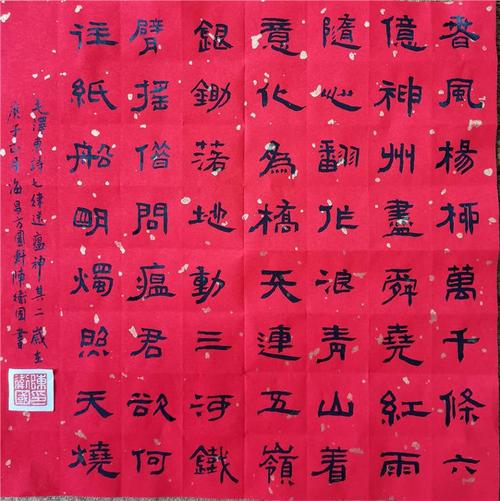 春風楊柳萬千條六
億神州盡舜堯紅雨
隨心翻作浪青山着
意化為橋天連五嶺
銀鋤落地動三河鐵
臂搖借問瘟君欲何
往紙船明燭照天燒
毛澤東詩七律送瘟神其二歲在
庚子正月海昌方圓軒陳衛國書
陳印
衛國